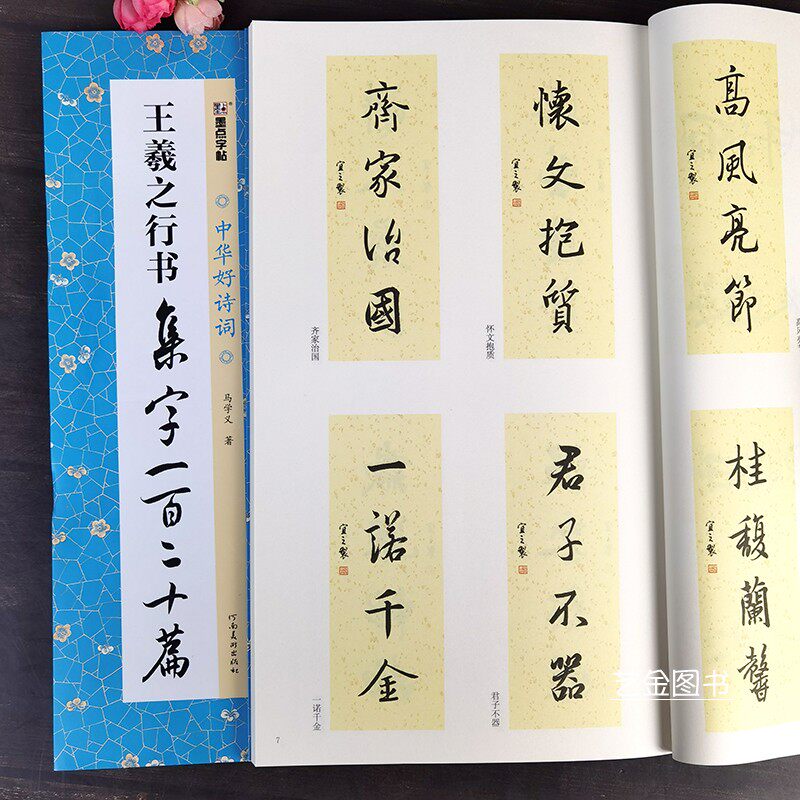 墨点字帖
中华好诗词
王羲之行书
集字一百二十篇
马学义 著
河南美术出版社
齊家治國
宜之製
齐家治国
懷文抱質
宜之製
怀文抱质
高風亮節
宜之製
一諾千金
宜之製
一诺千金
君子不器
宜之製
君子不器
桂馥蘭馨
宜之製
7
艺金图书